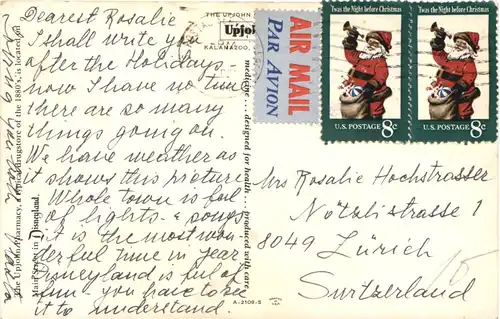 Dearest Rosalie
I shall write you
after the Holidays -
now I have no time
there are so many
things going on.
We have weather as
it shows this picture
Whole town is foil
of lights - & songs
it is the most won
derful time in year
Disneyland is ful of
fun - you have to see
it to understand.
THE UPJOHN
Upjo
KALAMAZOO,
The Upjohn Pharmacy, a typical drugstore of the 1880's, is located on
Main Street in Disneyland.
medicine... designed for health... produced with care
A-2109-S
AIR MAIL
PAR AVION
'Twas the Night before Christmas
U.S. POSTAGE 8c
'Twas the Night before Christmas
U.S. POSTAGE 8c
Mrs Rosalie Hochstrasser
Nötzlistrasse 1
8049 Zürich
Surtzerland